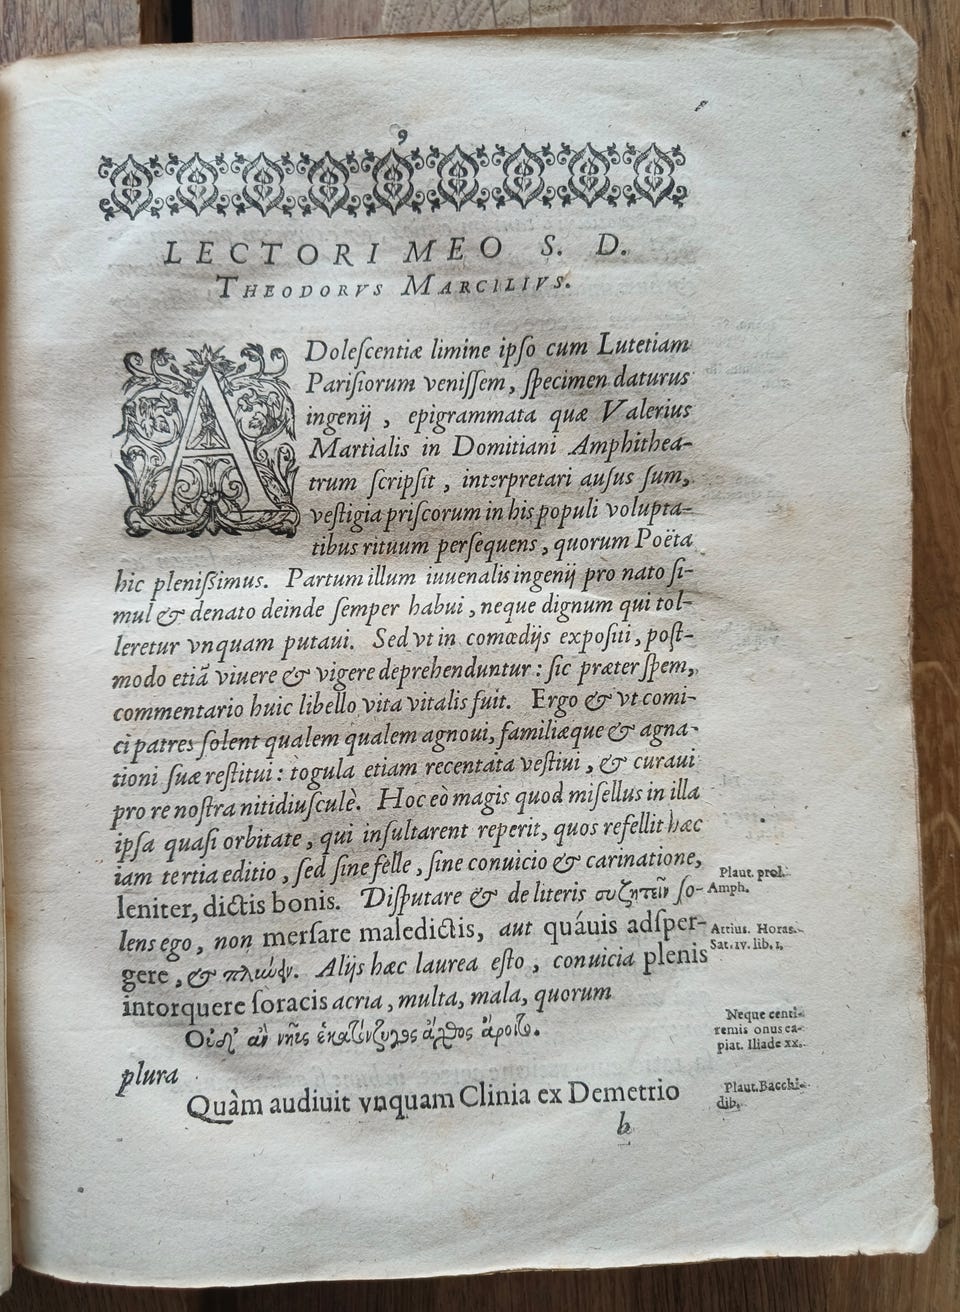 9
LECTORI MEO S. D.
THEODORVS MARCILIVS.
ADoleſcentiæ limine ipſo cum Lutetiam
Pariſiorum veniſſem, ſpecimen daturus
ingenij, epigrammata quæ Valerius
Martialis in Domitiani Amphithea-
trum ſcripſit, interpretari auſus ſum,
veſtigia priſcorum in his populi volupta-
tibus rituum perſequens, quorum Poëta
hic pleniſsimus. Partum illum iuuenalis ingenij pro nato ſi-
mul & denato deinde ſemper habui, neque dignum qui tol-
leretur vnquam putaui. Sed vt in comœdijs expoſiti, poſt-
modo etiã viuere & vigere deprehenduntur: ſic præter ſpem,
commentario huic libello vita vitalis fuit. Ergo & vt comi-
ci patres ſolent qualem qualem agnoui, familiæque & agna-
tioni ſuæ reſtitui: togula etiam recentata veſtiui, & curaui
pro re noſtra nitidiuſculè. Hoc eò magis quod miſellus in illa
ipſa quaſi orbitate, qui inſultarent reperit, quos refellit hæc
iam tertia editio, ſed ſine felle, ſine conuicio & carinatione,
leniter, dictis bonis. Diſputare & de literis συζητεῖν ſo-
lens ego, non merſare maledictis, aut quáuis adſper-
gere, & πλιώειν. Alijs hæc laurea eſto, conuicia plenis
intorquere ſoracis acria, multa, mala, quorum
Οὐδ' ἂν νηῦς ἑκατόνζυγος ἄχθος ἄροιτο.
plura
Quàm audiuit vnquam Clinia ex Demetrio
b
Plaut. prol.
Amph.
Attius. Horas.
Sat. iv. lib. 1,
Neque centi-
remis onus ca-
piat. Iliade xx.
Plaut. Bacchi-
dib.